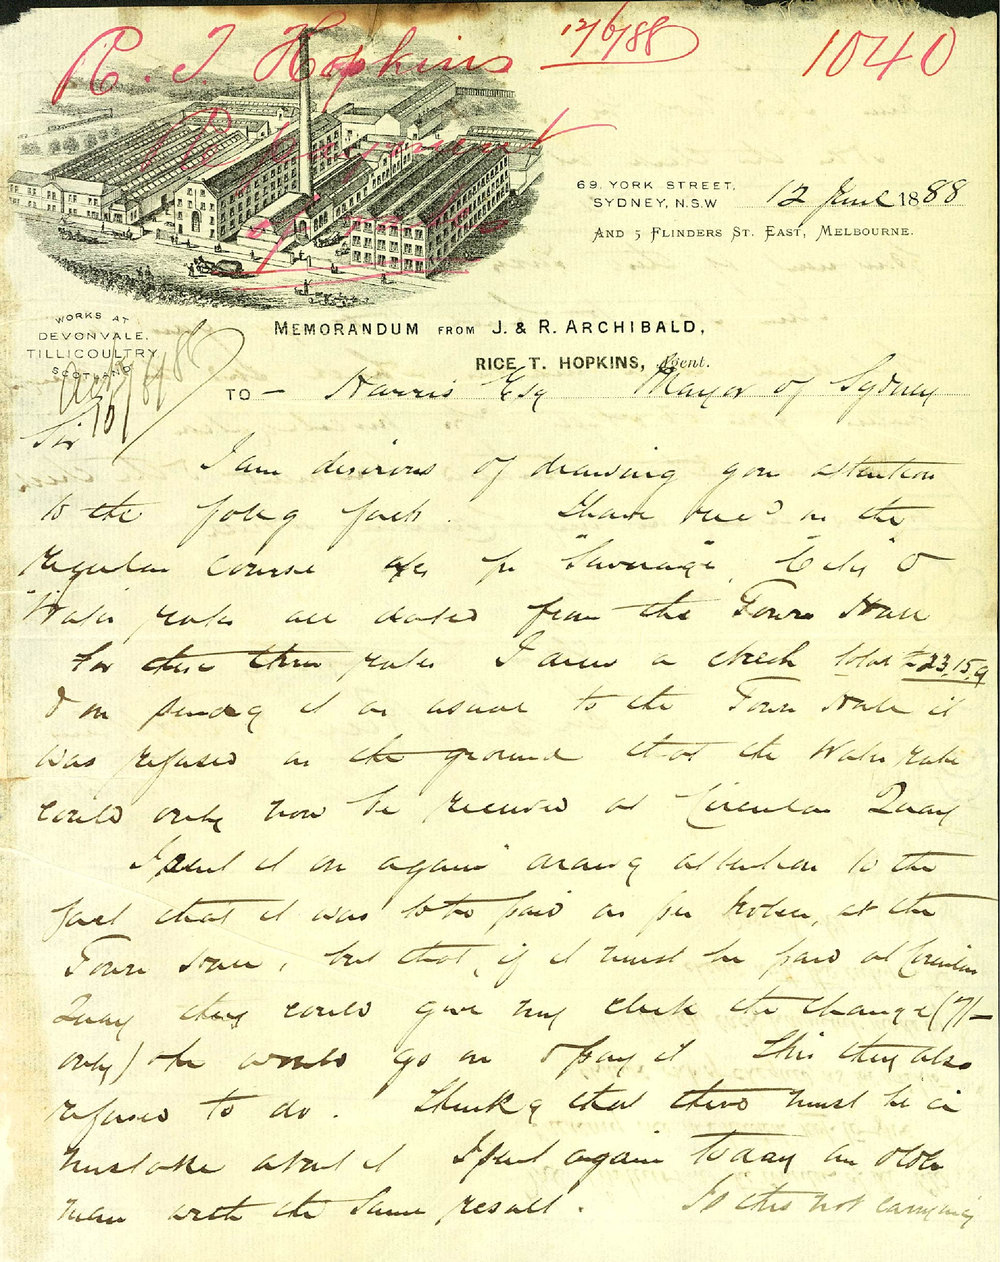 R. T. Hopkins 12/6/88 1040
Re payment
of rate
69, YORK STREET,
SYDNEY, N.S.W 12 June 1888
AND 5 FLINDERS ST. EAST, MELBOURNE.
WORKS AT
DEVONVALE,
TILLICOULTRY
SCOTLAND
MEMORANDUM FROM J. & R. ARCHIBALD,
RICE T. HOPKINS, Agent.
TO – Harris Esq Mayor of Sydney
Sir
I am desirous of drawing your attention
to the follg facts. I have recd in the
regular course for "Sewerage", "City" &
"Water rates all dated from the Town Hall
for these three rates I drew a check total £23,15,9
& on sending it as usual to the Town Hall it
was refused on the ground that the Water rate
could only now be received at Circular Quay
I sent it on again drawg attention to the
fact that it was to be paid as per notice, at the
Town Hall, but that, if it must be paid at Circular
Quay they could give my clerk the change (7/-
only) & he would go on & pay it This they also
refused to do. Thinkg that there must be a
mistake about it I sent again today an older
man with the same result. Is this not carrying